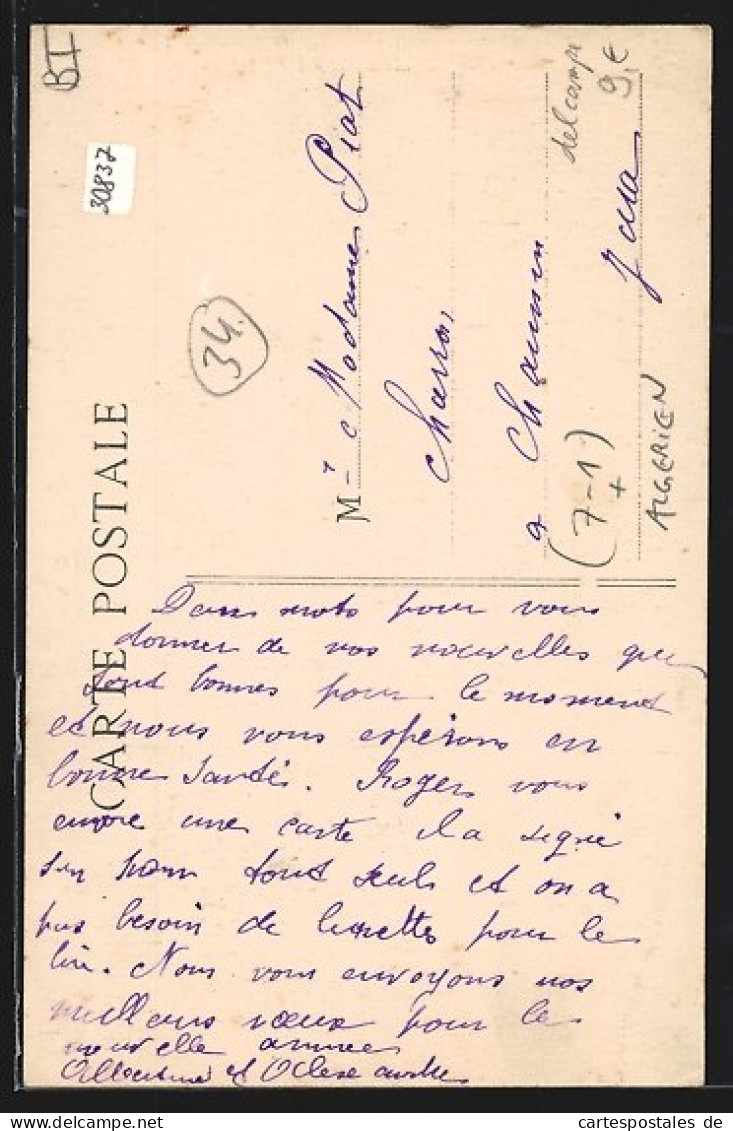 BI
30837
34.
CARTE POSTALE
delcampe
9,€
M- r Madame Piat
Charros
à Chaussin
Jura
(7-1)
+
ALGERIEN
Deux mots pour vous
donner de nos nouvelles qui
sont bonnes pour le moment
et nous vous espérons en
bonne santé. Roger vous
envoie une carte il a signé
son nom tout seul et on a
pas besoin de lunettes pour le
lire. Nous vous envoyons nos
meilleurs vœux pour la
nouvelle année
et
www.cartespostales.de
cartespostales.de